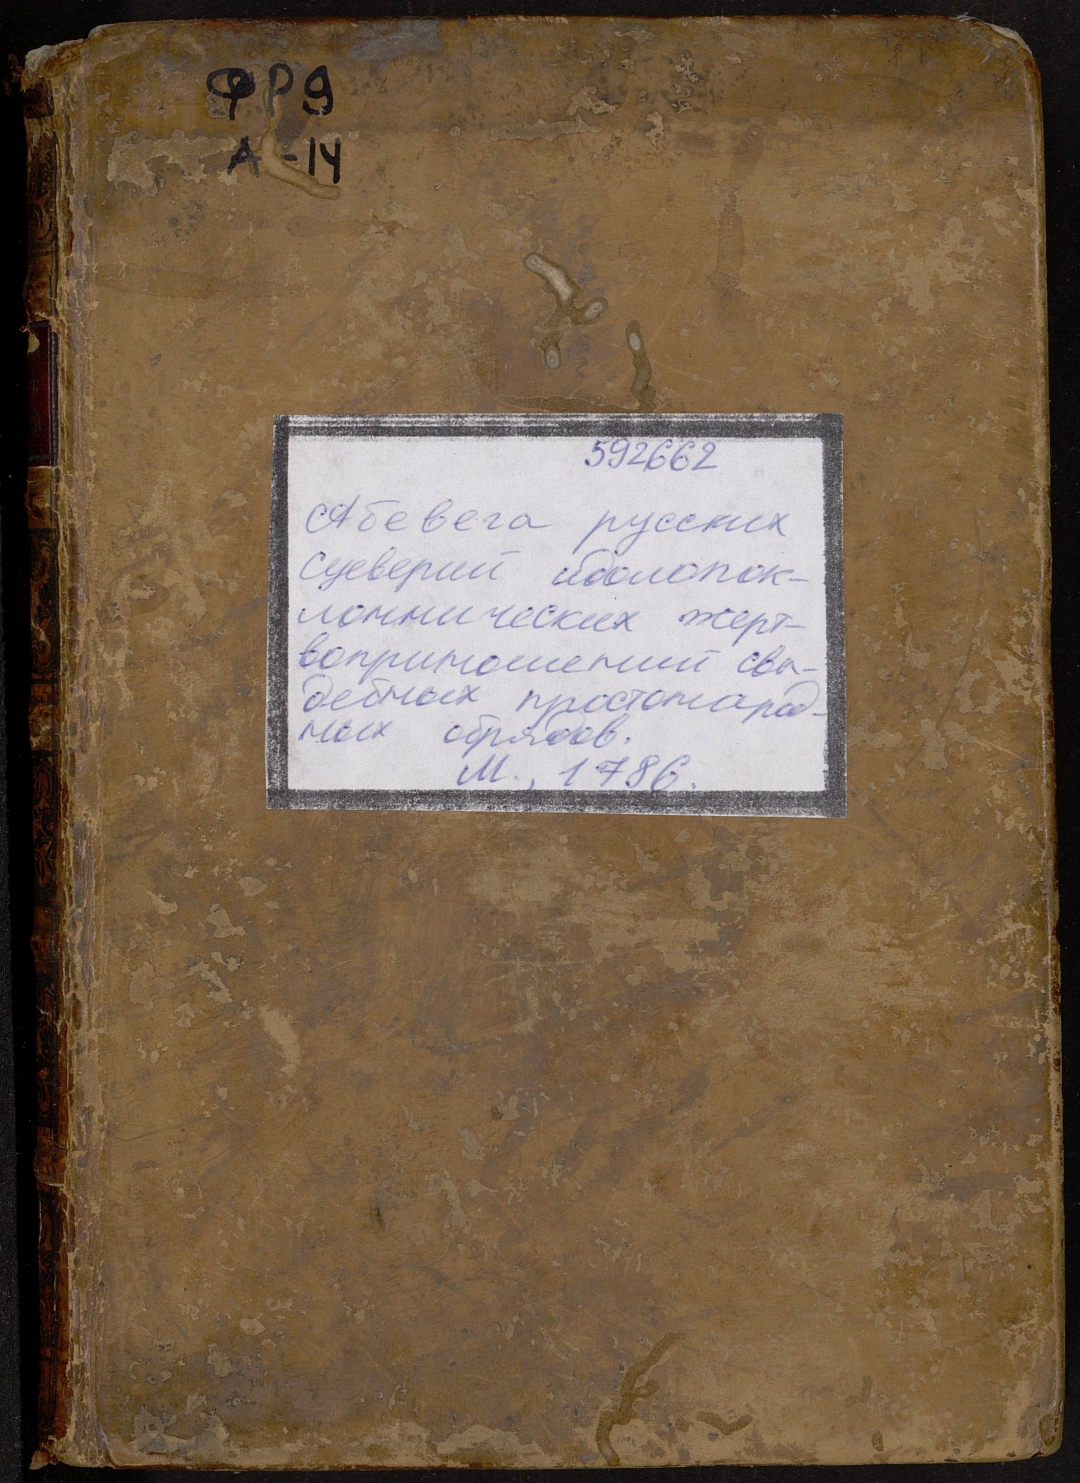 ФР9
А-14
592662
Абевега русских
суеверий идолопок-
лоннических жерт-
воприношений сва-
дебных простонарод-
ных обрядов.
М., 1786.